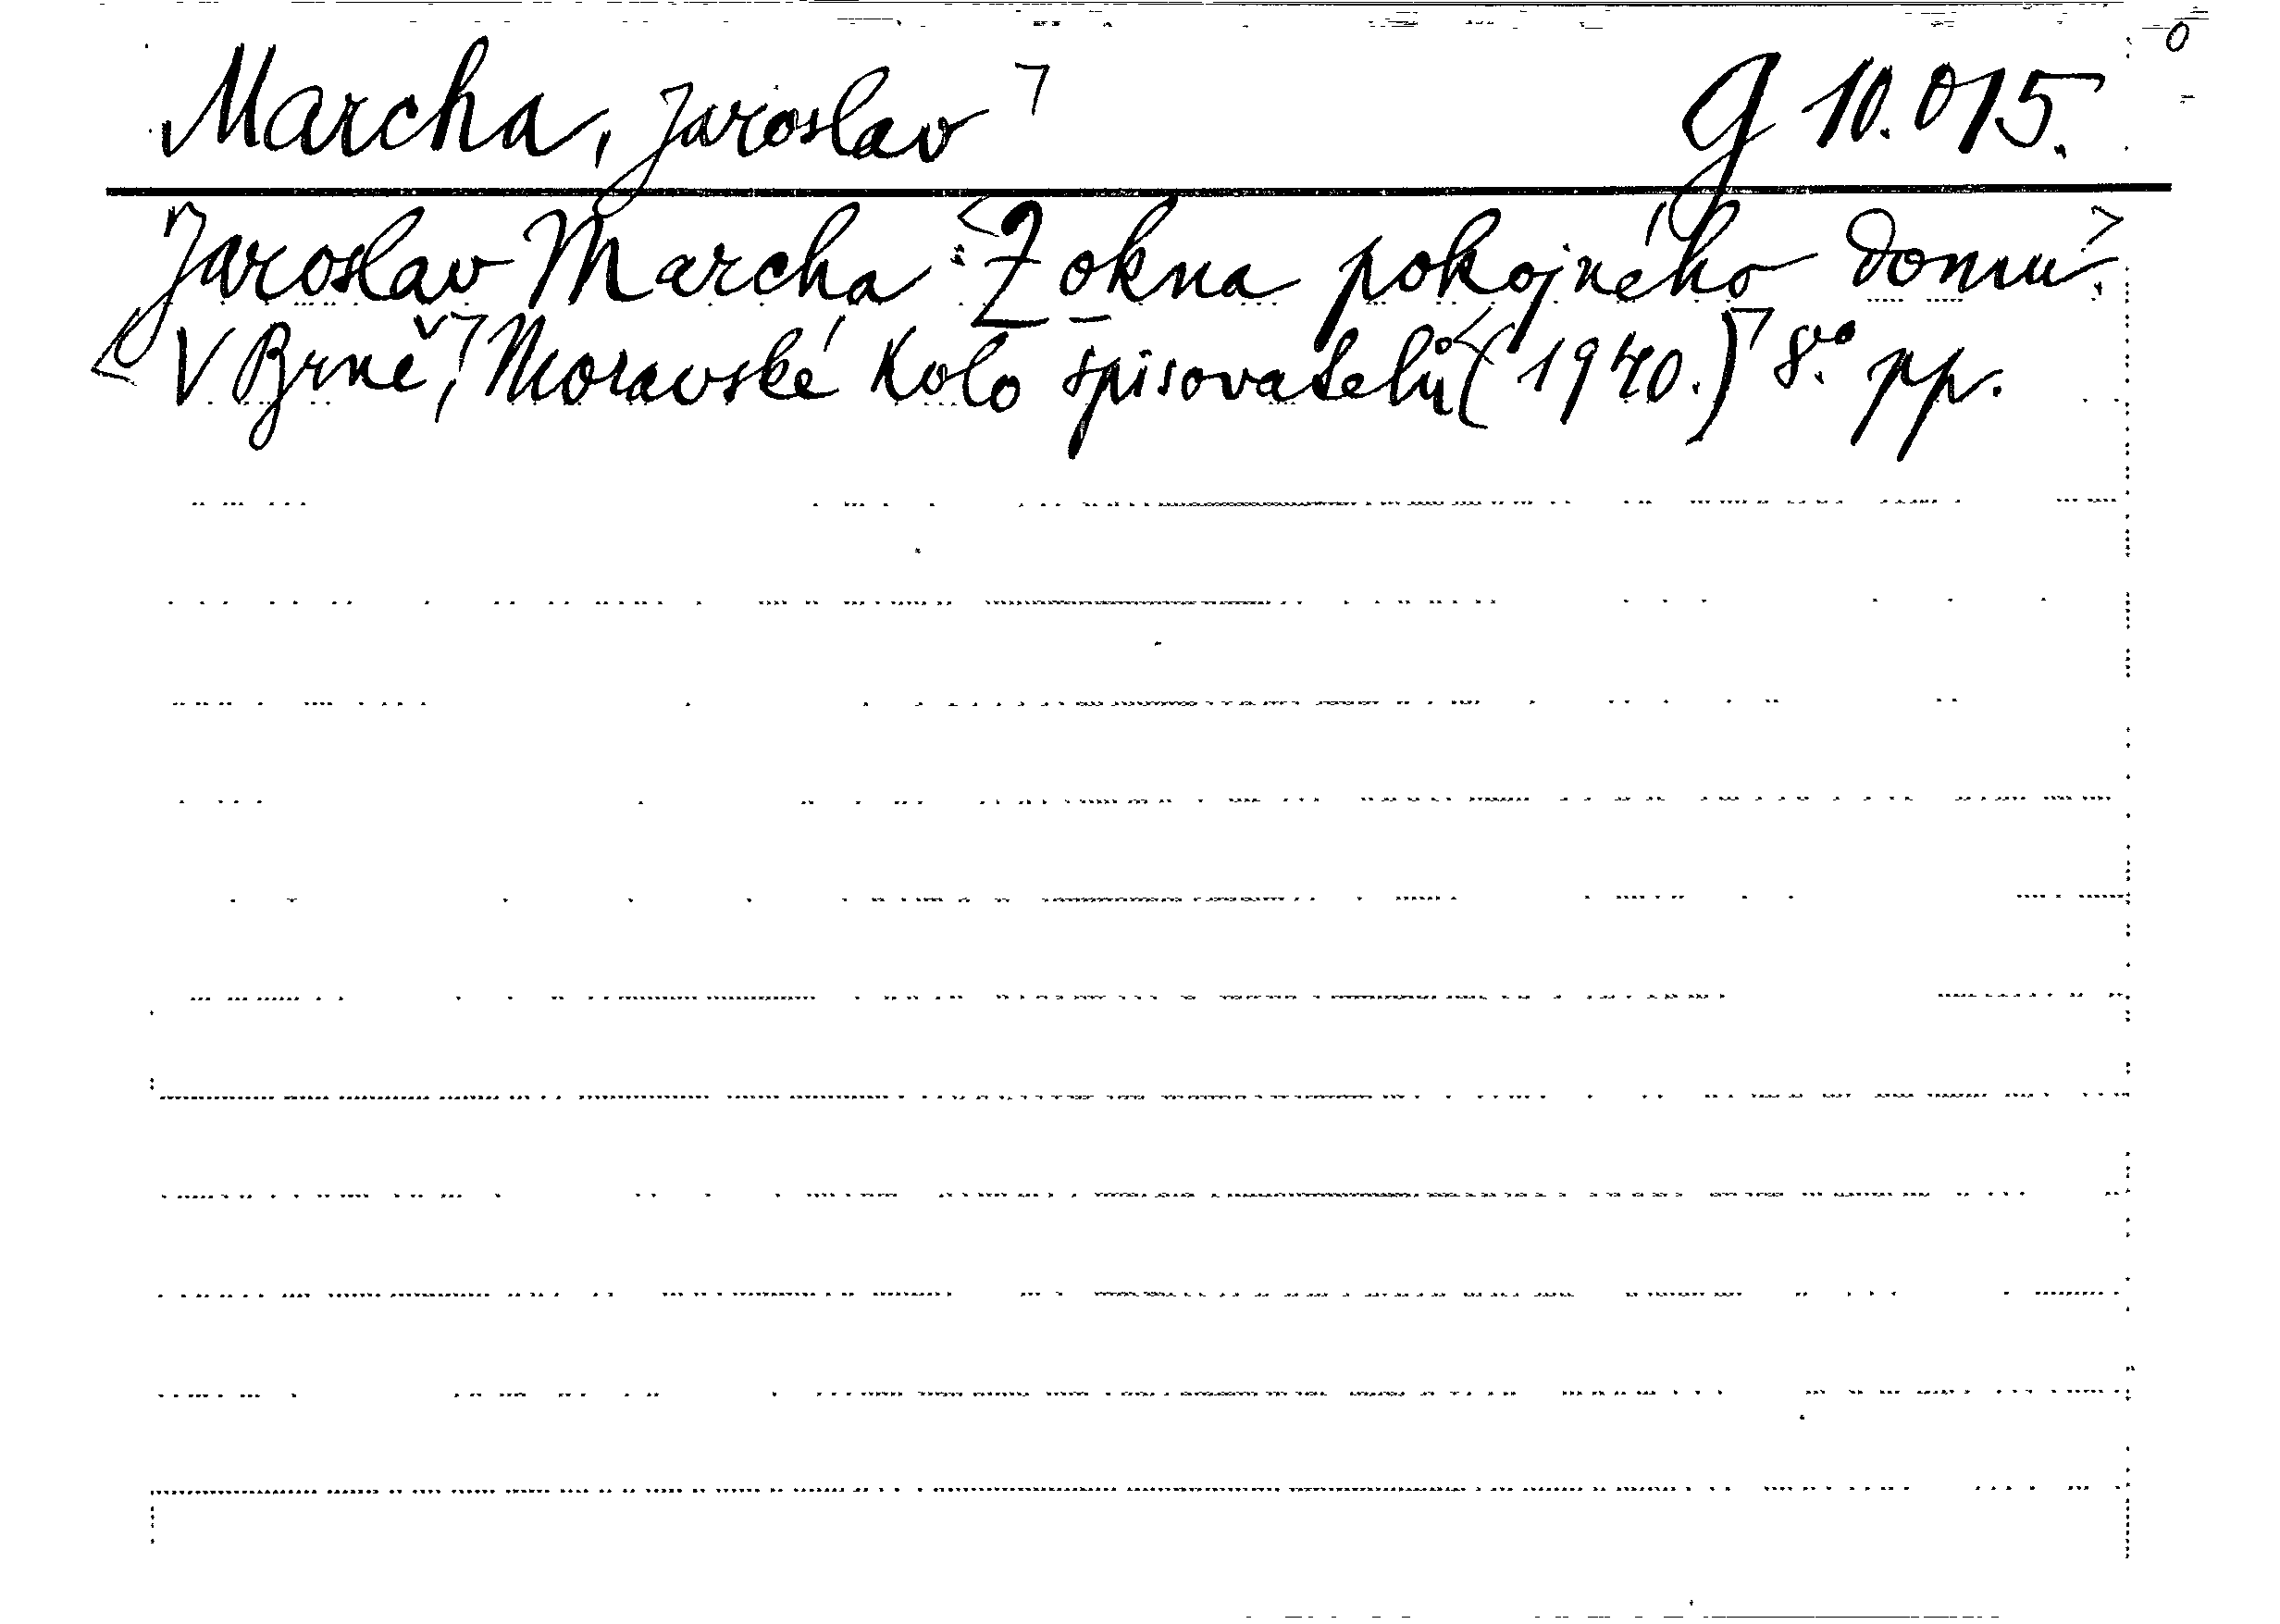 Marcha, Jaroslav g 10.015.
Jaroslav Marcha: Z okna pokojného domu.
V Brně, Moravské Kolo spisovatelů (1940.) 8.° pp.